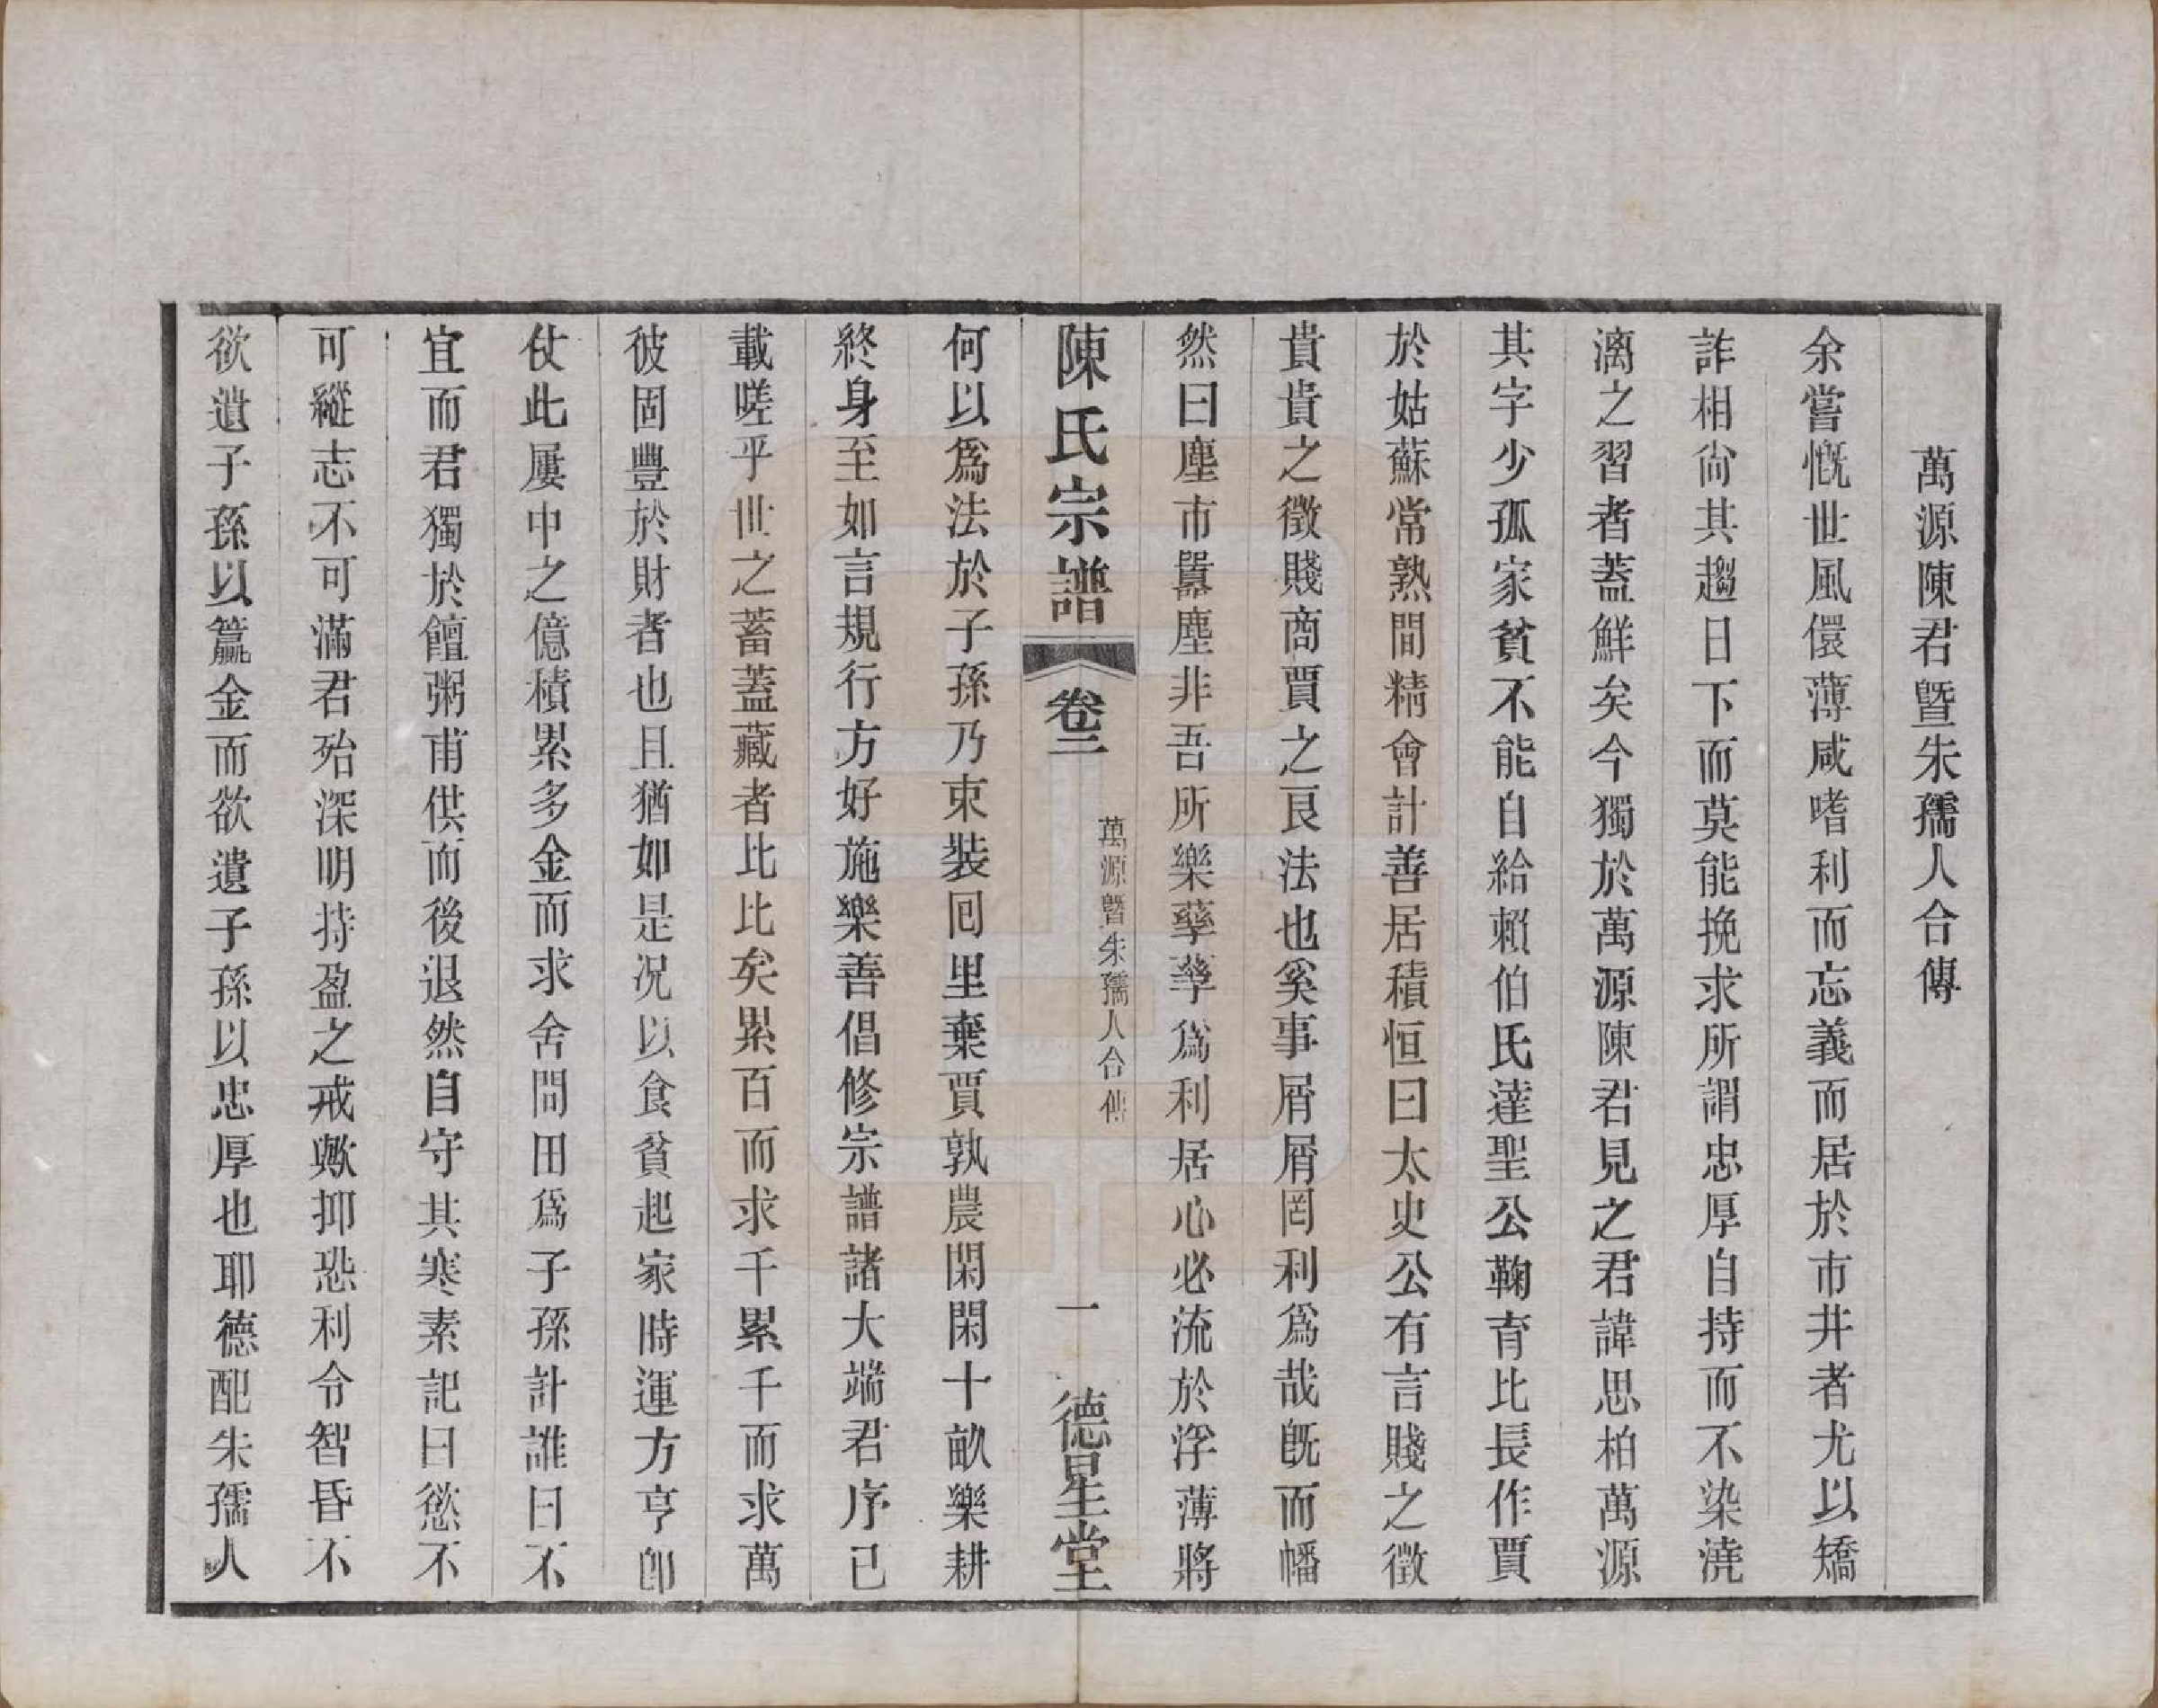 萬源陳君曁朱孺人合傳
余嘗慨世風儇薄咸嗜利而忘義而居於市井者尤以矯
詐相尙其趨日下而莫能挽求所謂忠厚自持而不染澆
漓之習者蓋鮮矣今獨於萬源陳君見之君諱思柏萬源
其字少孤家貧不能自給賴伯氏達聖公鞠育比長作賈
於姑蘇常熟間精會計善居積恒曰太史公有言賤之徵
貴貴之徵賤商賈之良法也奚事屑屑罔利爲哉旣而幡
然曰塵市囂塵非吾所樂孳孳爲利居心必流於浮薄將
陳氏宗譜
卷二
萬源曁朱孺人合傳
一
德星堂
何以爲法於子孫乃束裝囘里棄賈孰農閑閑十畝樂耕
終身至如言規行方好施樂善倡修宗譜諸大端君序已
載嗟乎世之蓄蓋藏者比比矣累百而求千累千而求萬
彼固豐於財者也且猶如是况以食貧起家時運方亨卽
仗此屢中之億積累多金而求舍問田爲子孫計誰曰不
宜而君獨於饘粥甫供而後退然自守其寒素記曰慾不
可縱志不可滿君殆深明持盈之戒歟抑恐利令智昏不
欲遺子孫以籯金而欲遺子孫以忠厚也耶德配朱孺人